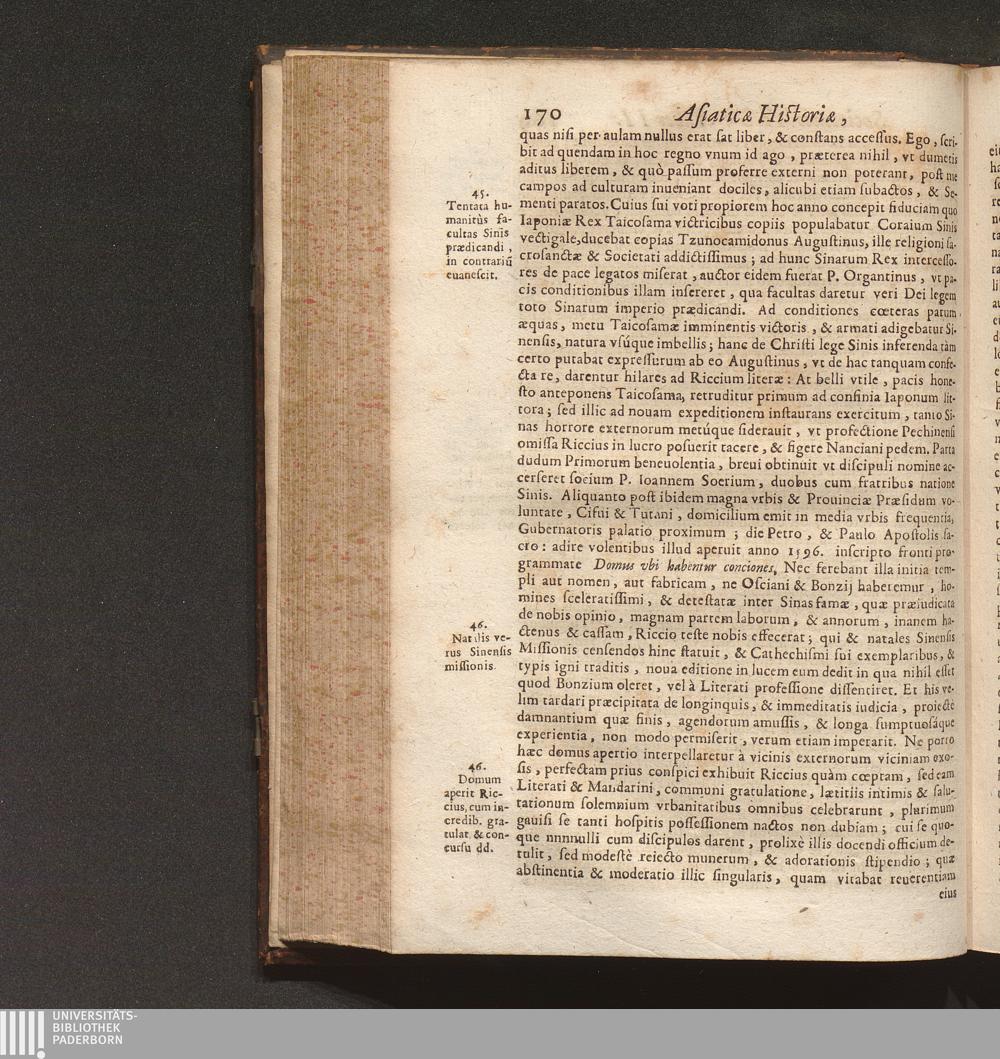 170 Asiaticæ Historiæ,
quas nisi per aulam nullus erat sat liber, & constans accessus. Ego, scri-
bit ad quendam in hoc regno vnum id ago, præterea nihil, vt dumetis
aditus liberem, & quò passum proferre externi non poterant, post me
campos ad culturam inueniant dociles, alicubi etiam subactos, & Se-
menti paratos. Cuius sui voti propiorem hoc anno concepit fiduciam quo
Iaponiæ Rex Taicosama victricibus copiis populabatur Coraium Sinis
vectigale, ducebat copias Tzunocamidonus Augustinus, ille religioni sa-
crosanctæ & Societati addictissimus; ad hunc Sinarum Rex intercesso-
res de pace legatos miserat, auctor eidem fuerat P. Organtinus, vt pa-
cis conditionibus illam insereret, qua facultas daretur veri Dei legem
toto Sinarum imperio prædicandi. Ad conditiones cœteras parum
æquas, metu Taicosamæ imminentis victoris, & armati adigebatur Si-
nensis, natura vsúque imbellis; hanc de Christi lege Sinis inferenda tàm
certo putabat expressurum ab eo Augustinus, vt de hac tanquam confe-
cta re, darentur hilares ad Riccium literæ: At belli vtile, pacis hone-
sto anteponens Taicosama, retruditur primum ad confinia Iaponum lit-
tora; sed illic ad nouam expeditionem instaurans exercitum, tanto Si-
nas horrore externorum metúque siderauit, vt profectione Pechinensi
omissa Riccius in lucro posuerit tacere, & figere Nanciani pedem. Parta
dudum Primorum beneuolentia, breui obtinuit vt discipuli nomine ac-
cerseret socium P. Ioannem Soerium, duobus cum fratribus natione
Sinis. Aliquanto post ibidem magna vrbis & Prouinciæ Præsidum vo-
luntate, Cifui & Tutani, domicilium emit in media vrbis frequentia,
Gubernatoris palatio proximum; die Petro, & Paulo Apostolis sa-
cro: adire volentibus illud aperuit anno 1596. inscripto fronti pro-
grammate Domus vbi habentur conciones, Nec ferebant illa initia tem-
pli aut nomen, aut fabricam, ne Osciani & Bonzij haberemur, ho-
mines sceleratissimi, & detestatæ inter Sinas famæ, quæ præiudicata
de nobis opinio, magnam partem laborum, & annorum, inanem ha-
ctenus & cassam, Riccio teste nobis effecerat; qui & natales Sinensis
Missionis censendos hinc statuit, & Cathechismi sui exemplaribus, &
typis igni traditis, noua editione in lucem eum dedit in qua nihil esset
quod Bonzium oleret, vel à Literati professione dissentiret. Et his ve-
lim tardari præcipitata de longinquis, & immeditatis iudicia, proiectè
damnantium quæ finis, agendorum amussis, & longa sumptuosáque
experientia, non modo permiserit, verum etiam imperarit. Ne porro
hæc domus apertio interpellaretur à vicinis externorum viciniam exo-
sis, perfectam prius conspici exhibuit Riccius quàm cœptam, sed eam
Literati & Mandarini, communi gratulatione, lætitiis intimis & salu-
tationum solemnium vrbanitatibus omnibus celebrarunt, plurimum
gauisi se tanti hospitis possessionem nactos non dubiam; cui se quo-
que nnnnulli cum discipulos darent, prolixè illis docendi officium de-
tulit, sed modestè reiecto munerum, & adorationis stipendio; quæ
abstinentia & moderatio illic singularis, quam vitabat reuerentiam
eius
45.
Tentata hu-
manitùs fa-
cultas Sinis
prædicandi,
in contrariū
euanescit.
46.
Natalis ve-
rus Sinensis
missionis.
46.
Domum
aperit Ric-
cius, cum in-
credib. gra-
tulat. & con-
cursu dd.
UNIVERSITÄTS-
BIBLIOTHEK
PADERBORN